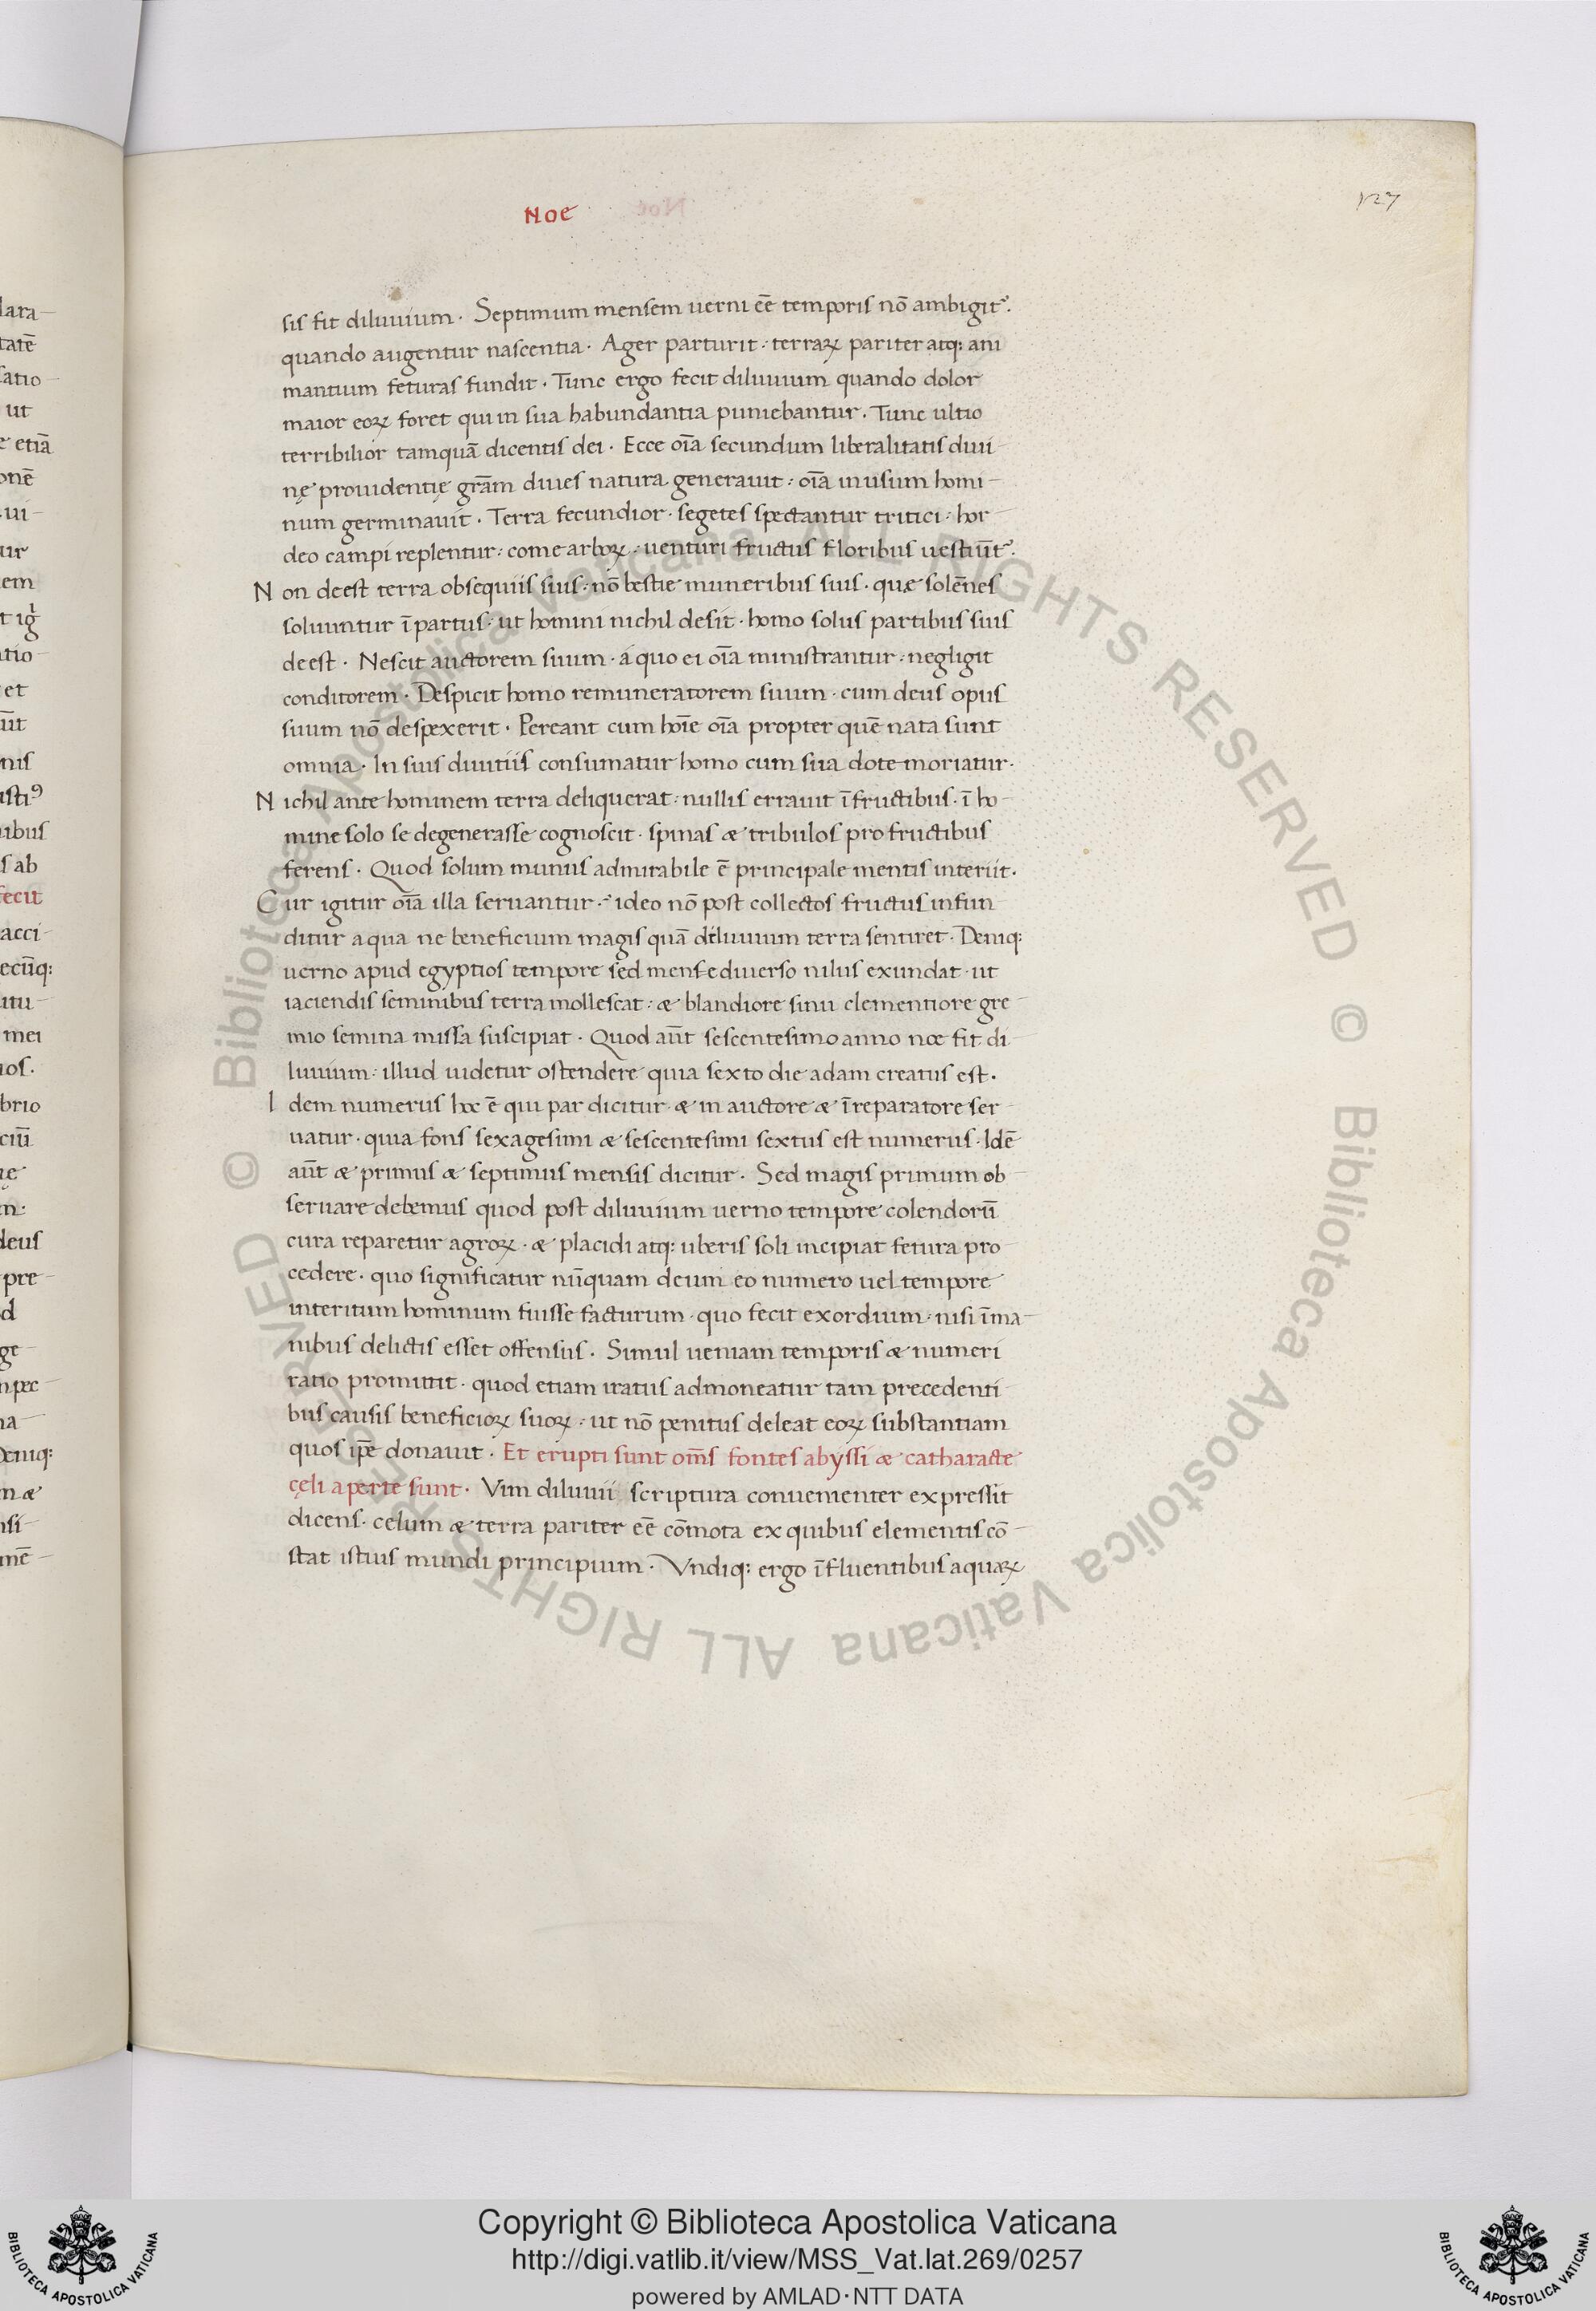 Noe
127
sis fit diluuium. Septimum mensem uerni eē temporis nō ambigit᷑.
quando augentur nascentia. Ager parturit: terraꝝ pariter atq: ani
mantium feturas fundit. Tunc ergo fecit diluuium quando dolor
maior eoꝝ foret qui in sua habundantia puniebantur. Tunc ultio
terribilior tamquā dicentis dei. Ecce oīa secundum liberalitatis diui-
nę prouidentię grām diues natura generauit: oīa in usum homi-
num germinauit. Terra fecundior. segetes spectantur tritici: hor-
deo campi replentur: come arboꝝ: uenturi fructus floribus uestiūt᷑.
Non deest terra obsequiis suis: nō bestie muneribus suis. quæ solēnes
soluuntur ī partus: ut homini nichil desit. homo solus partibus suis
deest. Nescit auctorem suum. á quo ei oīa ministrantur: negligit
conditorem. Despicit homo remuneratorem suum. cum deus opus
suum nō despexerit. Pereant cum hoīe oīa propter quē nata sunt
omnia. In suis diuitiis consumatur homo cum sua dote moriatur.
Nichil ante hominem terra deliquerat: nullis errauit ī fructibus. ī ho-
mine solo se degenerasse cognoscit. spinas æ tribulos pro fructibus
ferens. Quod solum munus admirabile ē principale mentis interiit.
Cur igitur oīa illa seruantur? ideo nō post collectos fructus infun
ditur aqua ne beneficium magis quā diluuium terra sentiret. Deniq:
uerno apud egyptios tempore sed mense diuerso nilus exundat. ut
iaciendis seminibus terra mollescat: æ blandiore sinu clementiore gre-
mio semina missa suscipiat. Quod aūt sescentesimo anno noe fit di-
luuium: illud uidetur ostendere quia sexto die adam creatus est.
Idem numerus hoc ē qui par dicitur. æ in auctore æ ī reparatore ser-
uatur. quia fons sexagesimi æ sescentesimi sextus est numerus. Idē
aūt æ primus æ septimus mensis dicitur. Sed magis primum ob-
seruare debemus quod post diluuium uerno tempore colendorū
cura reparetur agroꝝ. æ placidi atq: uberis soli incipiat fetura pro-
cedere. quo significatur nūquam deum eo numero uel tempore
interitum hominum fuisse facturum. quo fecit exordium. nisi īma-
nibus delictis esset offensus. Simul ueniam temporis æ numeri
ratio promittit. quod etiam iratus admoneatur tam precedenti-
bus causis beneficioꝝ suoꝝ: ut nō penitus deleat eoꝝ substantiam
quos ip̄e donauit. Et erupti sunt om̄s fontes abyssi æ catharacte
cęli aperte sunt. Vim diluuii scriptura conuenienter expressit
dicens. celum æ terra pariter eē cōmota ex quibus elementis cō-
stat istius mundi principium. Vndiq: ergo ī fluentibus aquaꝝ
© Biblioteca Apostolica Vaticana ALL RIGHTS RESERVED
© Biblioteca Apostolica Vaticana ALL RIGHTS RESERVED
Copyright © Biblioteca Apostolica Vaticana
http://digi.vatlib.it/view/MSS_Vat.lat.269/0257
powered by AMLAD·NTT DATA
BIBLIOTECA APOSTOLICA VATICANA
BIBLIOTECA APOSTOLICA VATICANA